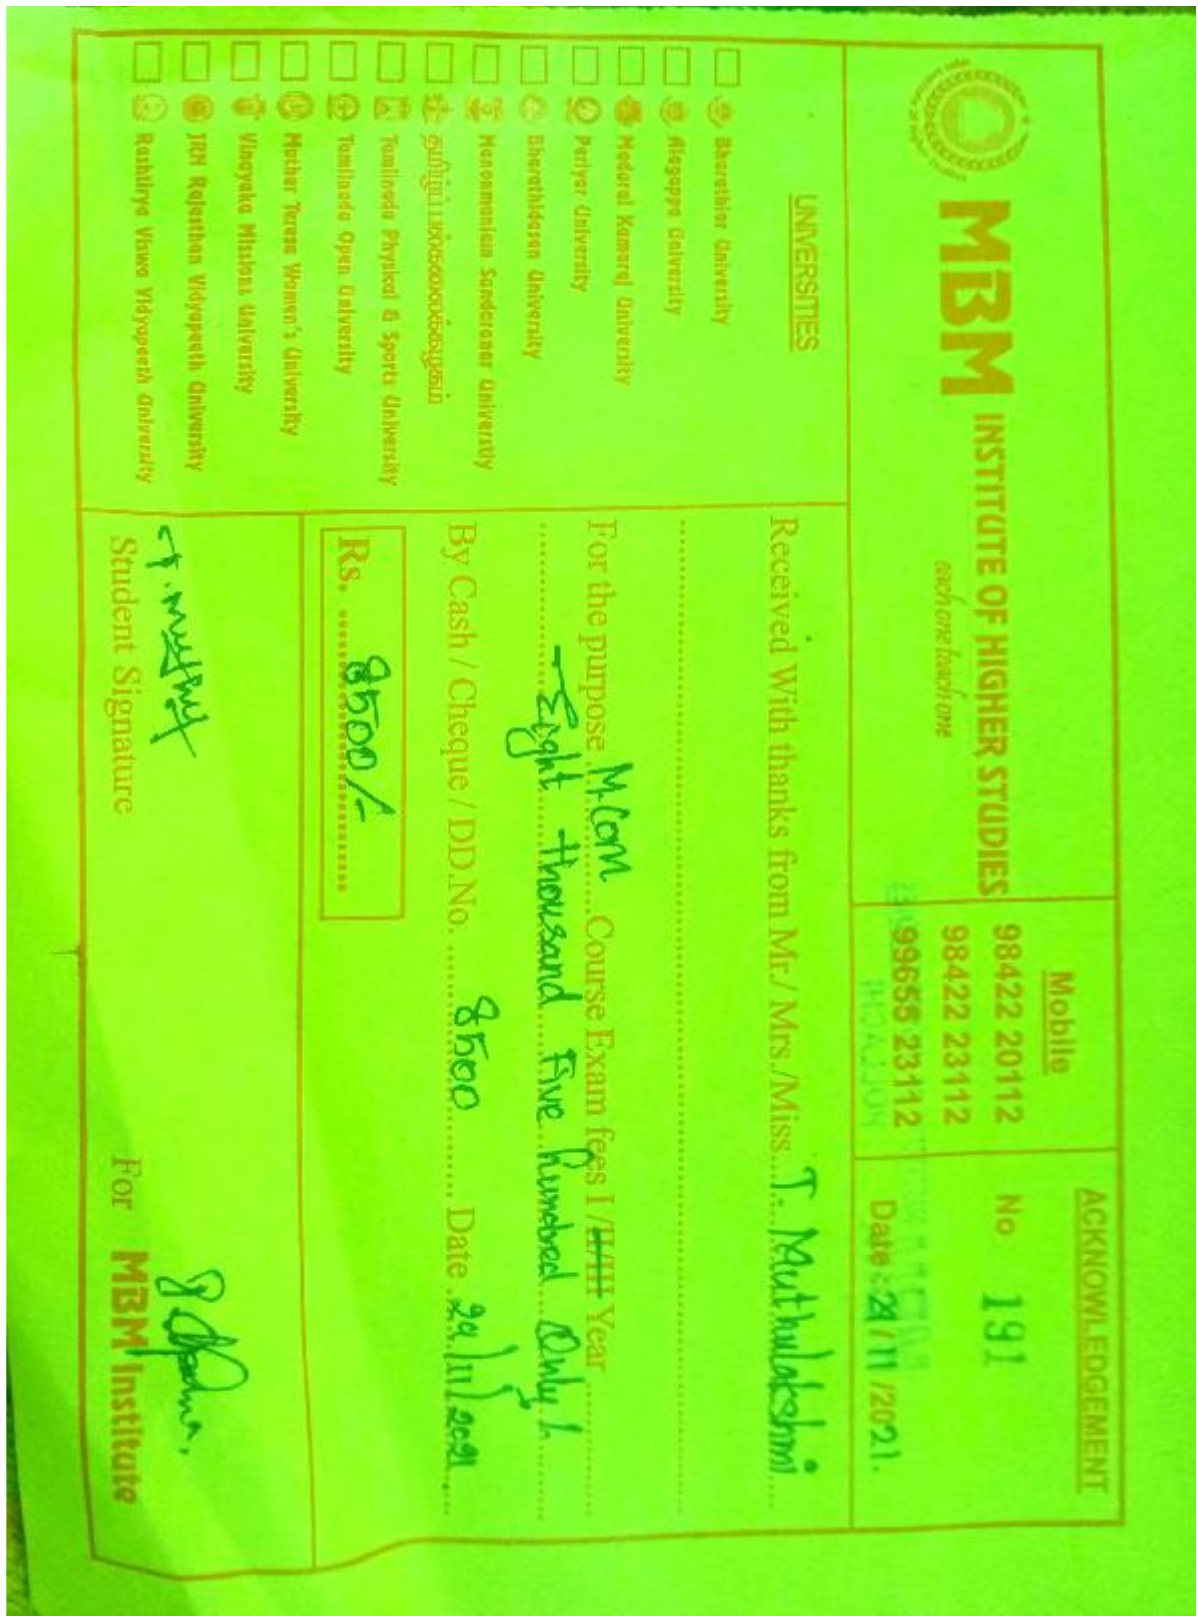 MBM INSTITUTE OF HIGHER STUDIES
each one teach one
Mobile
98422 20112
98422 23112
99655 23112
ACKNOWLEDGEMENT
No 191
Date : 29 / 11 /2021.
UNIVERSITIES
Bharathiar University
Alagappa University
Madurai Kamaraj University
Periyar University
Bharathidasan University
Manonmaniam Sundaranar University
தமிழ்ப் பல்கலைக்கழகம்
Tamilnadu Physical & Sports University
Tamilnadu Open University
Mother Terasa Women's University
Vinayaka Missions University
JRN Rajasthan Vidyapeeth University
Rashtirya Viswa Vidyapeeth University
Received With thanks from Mr./ Mrs./Miss...T. Muthulakshmi....
For the purpose M.Com Course Exam fees I /II/III Year
Eight thousand Five hundred Only/.
By Cash / Cheque / DD.No. 8500 Date 29/11/2021
Rs. 8500/-
Student Signature
For MBM Institute